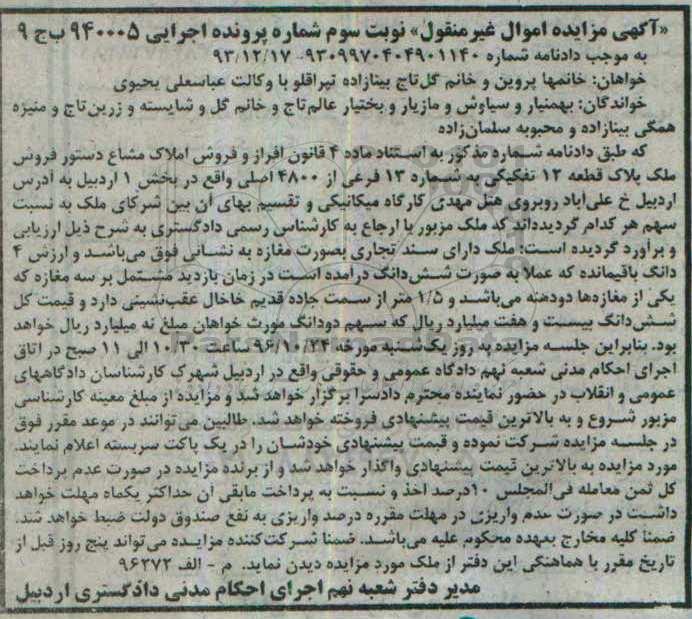 «آگهی مزایده اموال غیرمنقول» نوبت سوم شماره پرونده اجرایی ۹۴۰۰۰۵ ب ج ۹
به موجب دادنامه شماره ۹۳۰۹۹۷۰۴۰۴۹۰۱۱۴۰- ۹۳/۱۲/۱۷
خواهان: خانمها پروین و خانم گل‌تاج بینازاده تپراقلو با وکالت عباسعلی یحیوی
خواندگان: بهمنیار و سیاوش و مازیار و بختیار عالم‌تاج و خانم گل و شایسته و زرین‌تاج و منیزه
همگی بینازاده و محبوبه سلمان‌زاده
که طبق دادنامه شماره مذکور به استناد ماده ۴ قانون افراز و فروش املاک مشاع دستور فروش
ملک پلاک قطعه ۱۲ تفکیکی به شماره ۱۳ فرعی از ۴۸۰۰ اصلی واقع در بخش ۱ اردبیل به آدرس
اردبیل خ علی‌آباد روبروی هتل مهدی کارگاه میکانیکی و تقسیم بهای آن بین شرکای ملک به نسبت
سهم هر کدام گردیده‌اند که ملک مزبور با ارجاع به کارشناس رسمی دادگستری به شرح ذیل ارزیابی
و برآورد گردیده است: ملک دارای سند تجاری بصورت مغازه به نشانی فوق می‌باشد و ارزش ۴
دانگ باقیمانده که عملا به صورت شش‌دانگ درآمده است در زمان بازدید مشتمل بر سه مغازه که
یکی از مغازه‌ها دودهنه می‌باشد و ۱/۵ متر از سمت جاده قدیم خلخال عقب‌نشینی دارد و قیمت کل
شش‌دانگ بیست و هفت میلیارد ریال که سهم دودانگ مورث خواهان مبلغ نه میلیارد ریال خواهد
بود. بنابراین جلسه مزایده به روز یک‌شنبه مورخه ۹۶/۱۰/۲۴ ساعت ۱۰/۳۰ الی ۱۱ صبح در اتاق
اجرای احکام مدنی شعبه نهم دادگاه عمومی و حقوقی واقع در اردبیل شهرک کارشناسان دادگاههای
عمومی و انقلاب در حضور نماینده محترم دادسرا برگزار خواهد شد و مزایده از مبلغ معینه کارشناسی
مزبور شروع و به بالاترین قیمت پیشنهادی فروخته خواهد شد. طالبین می‌توانند در موعد مقرر فوق
در جلسه مزایده شرکت نموده و قیمت پیشنهادی خودشان را در یک پاکت سربسته اعلام نمایند.
مورد مزایده به بالاترین قیمت پیشنهادی واگذار خواهد شد و از برنده مزایده در صورت عدم پرداخت
کل ثمن معامله فی‌المجلس ۱۰درصد اخذ و نسبت به پرداخت مابقی آن حداکثر یکماه مهلت خواهد
داشت در صورت عدم واریزی در مهلت مقرره درصد واریزی به نفع صندوق دولت ضبط خواهد شد.
ضمنا کلیه مخارج بعهده محکوم علیه می‌باشد. ضمنا شرکت‌کننده مزایده می‌تواند پنج روز قبل از
تاریخ مقرر با هماهنگی این دفتر از ملک مورد مزایده دیدن نماید. م - الف ۹۶۲۷۲
مدیر دفتر شعبه نهم اجرای احکام مدنی دادگستری اردبیل